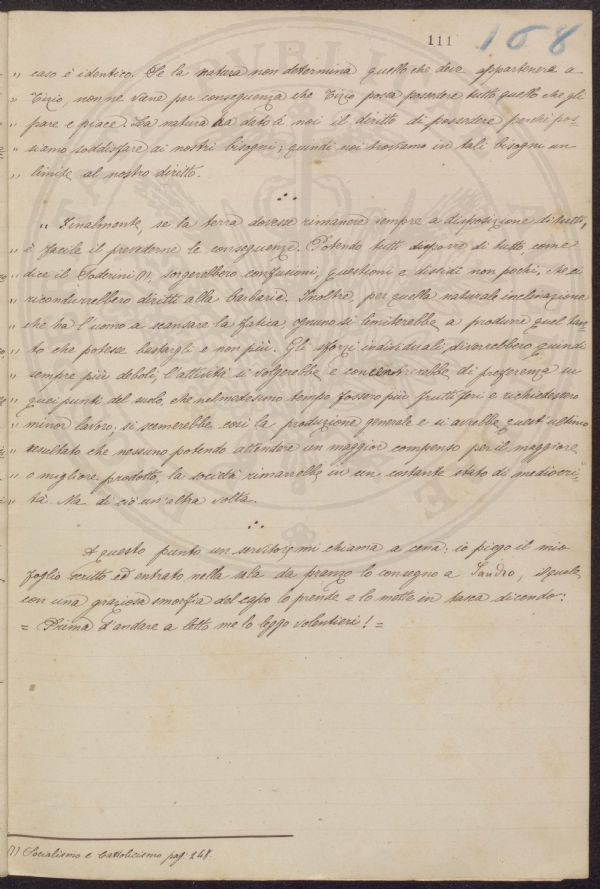 111 168
" caso è identico. Se la natura non determina quello che deve appartenere a
" Tizio, non ne viene per conseguenza che Tizio possa possedere tutto quello che gli
" pare e piace. La natura ha dato a noi il diritto di possedere perchè pos-
" siamo soddisfare ai nostri bisogni; quindi noi troviamo in tali bisogni un
" limite al nostro diritto.
" Finalmente, se la terra dovesse rimanere sempre a disposizione di tutti,
" è facile il prevederne le conseguenze. Potendo tutti disporre di tutto, come
" dice il Soderini (1), sorgerebbero confusioni, questioni e dissidi non pochi, che ci
" ricondurrebbero diritti alla barbarie. Inoltre, per quella naturale inclinazione
" che ha l'uomo a scansare la fatica, ognuno si limiterebbe a produrre quel tan-
" to che potesse bastargli e non più. Gli sforzi individuali diverrebbero quindi
" sempre più deboli, l'attività si volgerebbe e concentrerebbe di preferenza in
" quei punti del suolo, che nel medesimo tempo fossero più fruttiferi e richiedessero
" minor lavoro; si scemerebbe così la produzione generale e si avrebbe quest'ultimo
" resultato che nessuno potendo attendere un maggior compenso per il maggiore
" o migliore prodotto, la società rimarrebbe in un costante stato di mediocri-
" tà. Ma di ciò un'altra volta.
A questo punto un servitore mi chiama a cena: io piego il mio
foglio scritto ed entrato nella sala da pranzo lo consegno a Sandro, il quale,
con una graziosa smorfia del capo lo prende e lo mette in tasca dicendo:
= Prima d'andare a letto me lo leggo volentieri! =
(1) Socialismo e Cattolicismo pag: 248.